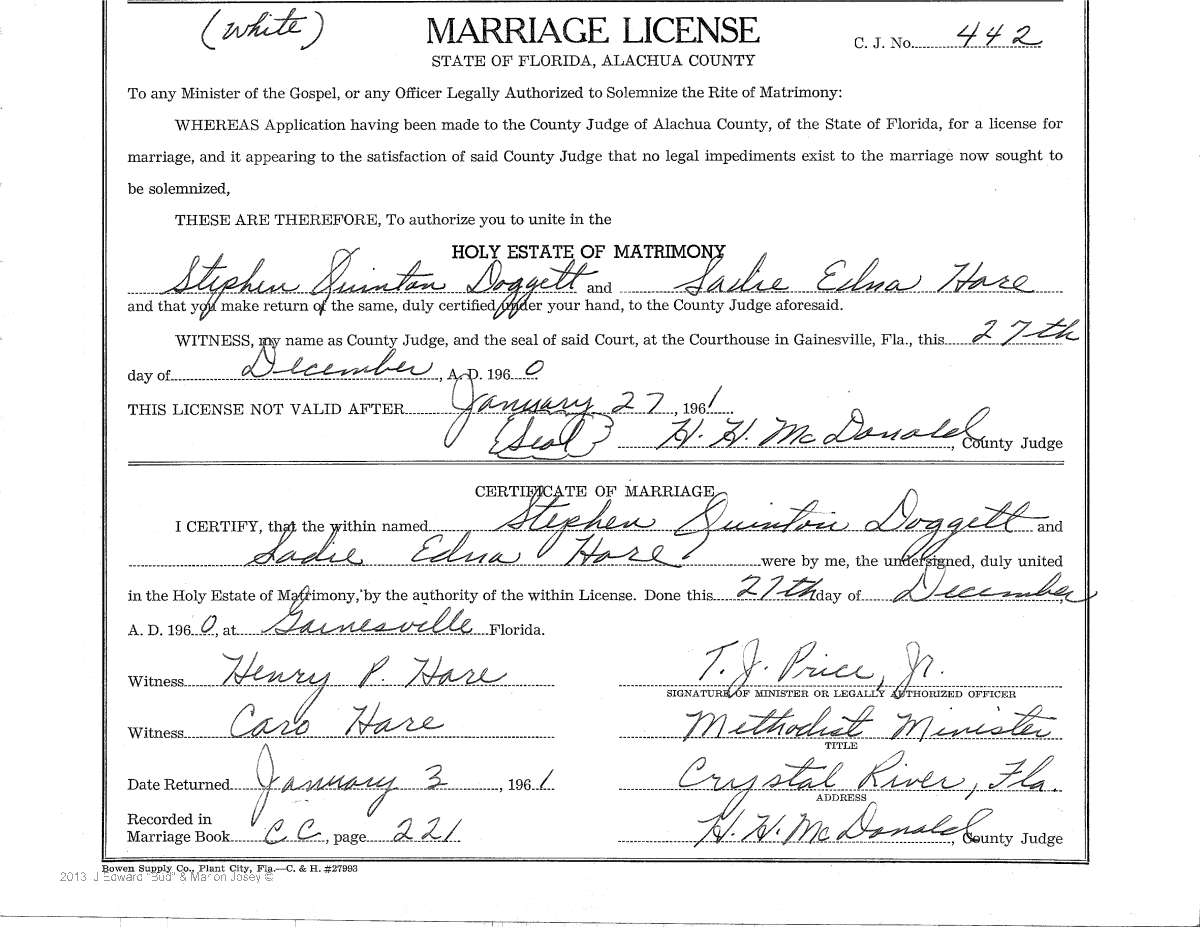 (White)
MARRIAGE LICENSE
C. J. No. 442
STATE OF FLORIDA, ALACHUA COUNTY
To any Minister of the Gospel, or any Officer Legally Authorized to Solemnize the Rite of Matrimony:
WHEREAS Application having been made to the County Judge of Alachua County, of the State of Florida, for a license for
marriage, and it appearing to the satisfaction of said County Judge that no legal impediments exist to the marriage now sought to
be solemnized,
THESE ARE THEREFORE, To authorize you to unite in the
HOLY ESTATE OF MATRIMONY
Stephen Quinton Doggett and Sadie Edna Hare
and that you make return of the same, duly certified under your hand, to the County Judge aforesaid.
WITNESS, my name as County Judge, and the seal of said Court, at the Courthouse in Gainesville, Fla., this 27th
day of December, A. D. 1960
THIS LICENSE NOT VALID AFTER January 27, 1961
{Seal} H. H. McDonald, County Judge
CERTIFICATE OF MARRIAGE
I CERTIFY, that the within named Stephen Quinton Doggett and
Sadie Edna Hare were by me, the undersigned, duly united
in the Holy Estate of Matrimony, by the authority of the within License. Done this 27th day of December,
A. D. 1960, at Gainesville Florida.
Witness Henry P. Hare T. J. Price, Jr.
SIGNATURE OF MINISTER OR LEGALLY AUTHORIZED OFFICER
Witness Caro Hare Methodist Minister
TITLE
Date Returned January 3, 1961 Crystal River, Fla.
ADDRESS
Recorded in
Marriage Book CC, page 221 H. H. McDonald, County Judge
Bowen Supply Co., Plant City, Fla.—C. & H. #27993
2013 J Edward "Bud" & Marion Josey ©